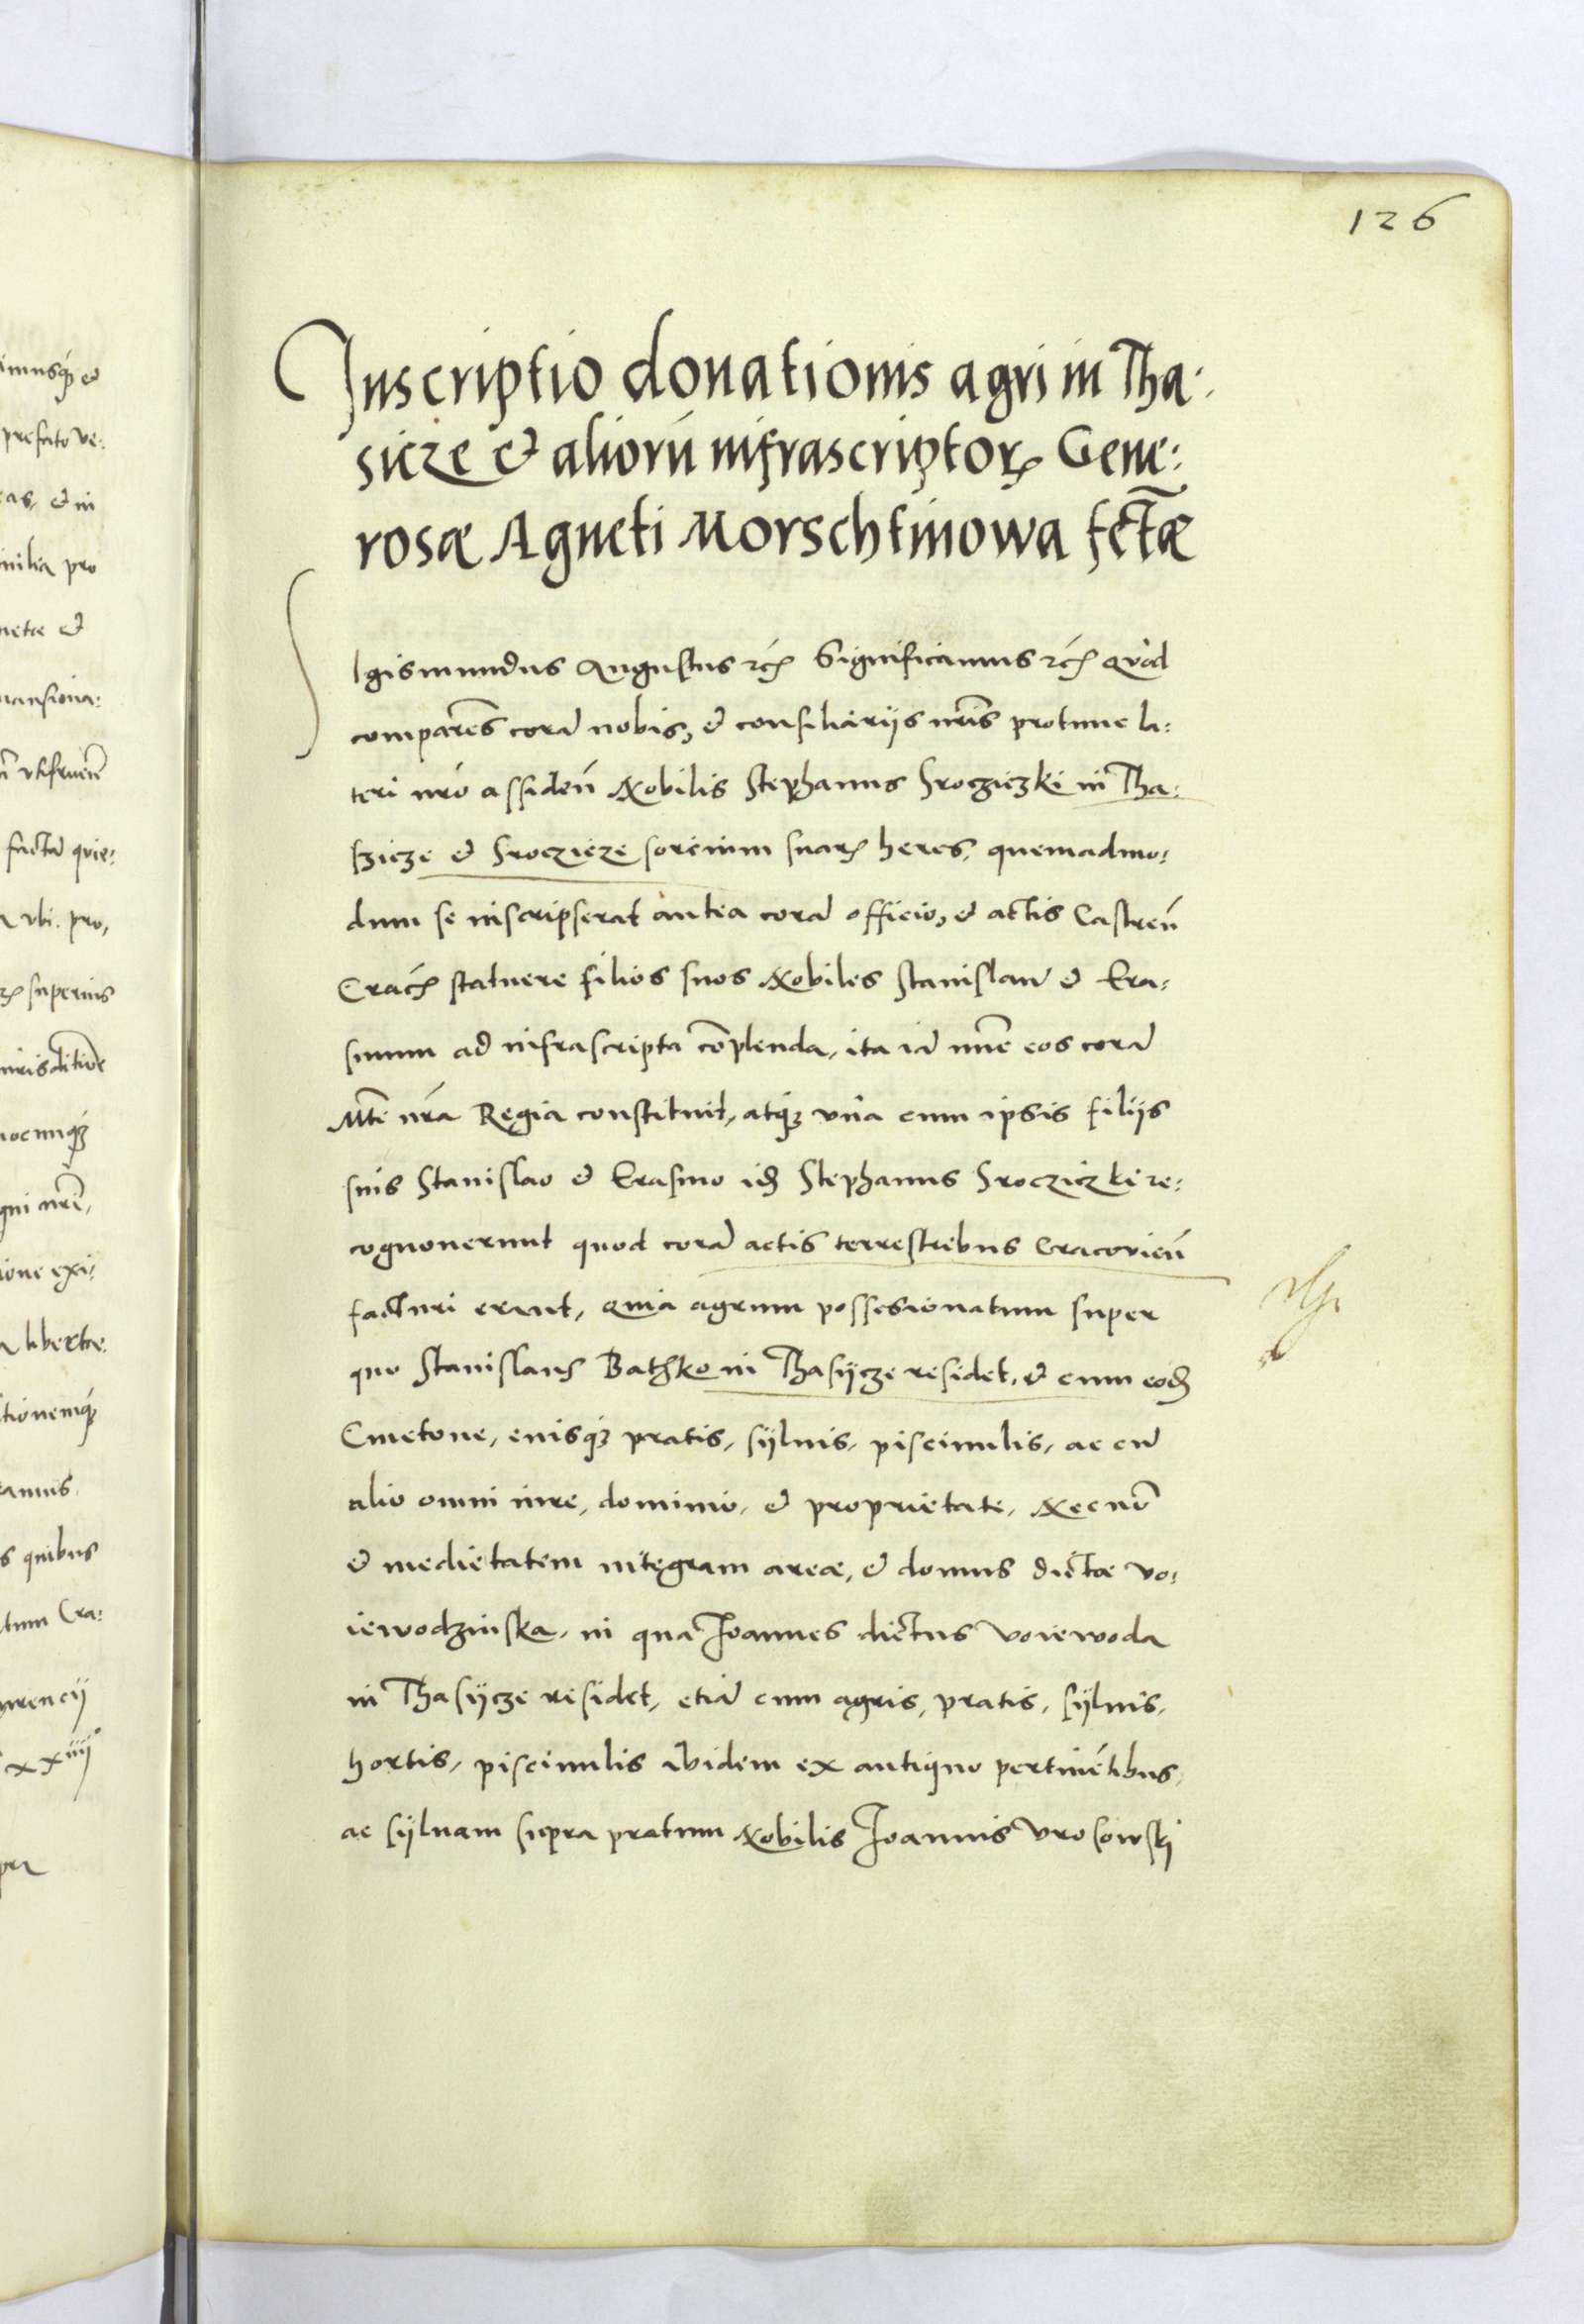 126
Inscriptio donationis agri in Tha:
sicze et aliorū infrascriptorꝝ Gene:
rosæ Agneti Morschtinowa fctæ
Sigismundus Augustus etc̃ Significamus etc̃ Quod
comparēs corā nobis, et consiliarijs nr̄is protunc la:
teri nro assideñ Nobilis Stephanus Srocziczki in Tha:
szicze et Sroczicze sorcium suarꝝ heres, quemadmo:
dum se inscripserat antea corā officio, et actis Castreñ
Cracꝭ statuere filios suos Nobiles Stanislaū et Era:
smum ad infrascripta cōplenda, ita iā nūc eos corā
Mte nrā Regia constituit, atqꝫ una cum ipsis filijs
suis Stanislao et Erasmo idꝫ Stephanus Sroczicžki re:
cognouerunt quod corā actis terrestrebus Cracovieñ
facturi erunt, Quia agrum possesionatum super
quo Stanislaus Bathko in Thasijcze residet, et cum eodꝫ
Cmetone, eiusqꝫ pratis, sijluis, piscinulis, ac cū
alio omni iure, dominio, et proprietate, Necnō
et medietatem integram areæ, et domus dictæ vo:
iewodzinska, in qua Joannes dictus voiewoda
in Thasijcze residet, etiā cum agris, pratis, sijluis,
hortis, piscinulis ibidem ex antiquo pertinētibus,
ac sijluam supra pratum Nobilis Joannis Vrosowskj
imusqꝫ et
prefato ve:
cas, et in
netæ et
mansiona:
factā quie:
ubi. pro,
superius
urisditiōe
uocunqꝫ
gni nr̄i,
ione exi:
libertæ.
tionemqꝫ
ramus.
s quibus
tum Cra:
urencij
xxiiij